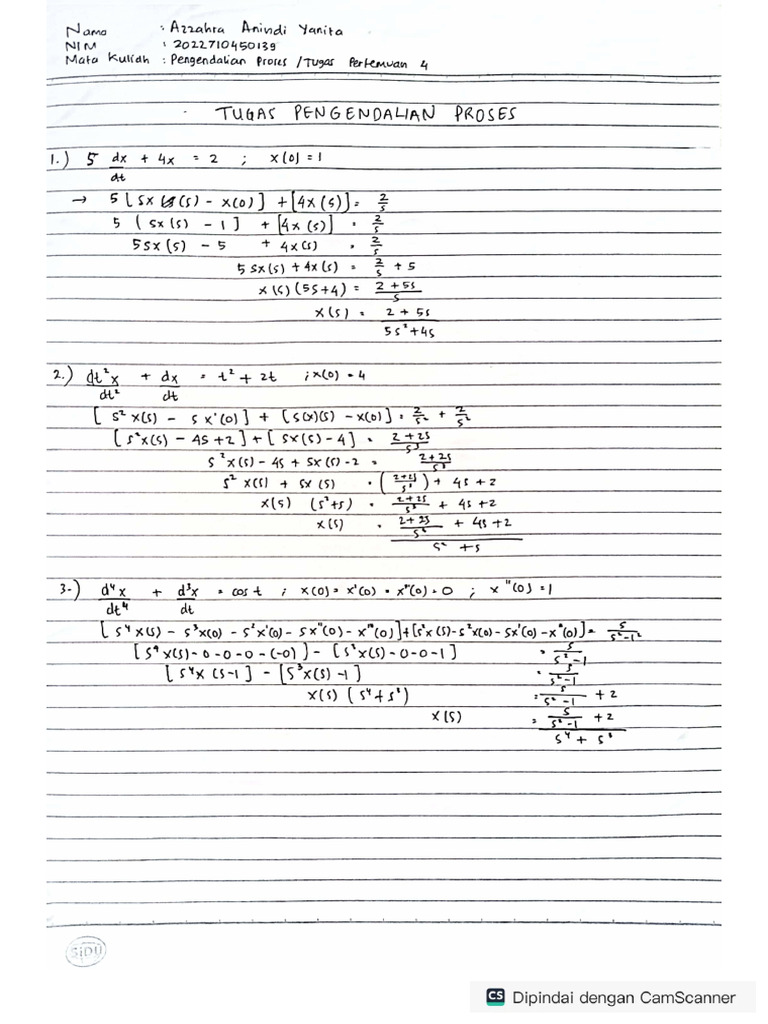 Nama : Azzahra Anindi Yanita
NIM : 2022710450139
Mata Kuliah : Pengendalian Proses /Tugas Pertemuan 4
TUGAS PENGENDALIAN PROSES
1.) 5 dx/dt + 4x = 2 ; x(0) = 1
→ 5 [sx (s) - x(0)] + [4x (s)] = 2/s
5 [sx (s) - 1] + [4x (s)] = 2/s
5sx (s) - 5 + 4x(s) = 2/s
5 sx(s) + 4x(s) = 2/s + 5
x(s) (5s+4) = (2 + 5s)/s
x(s) = (2 + 5s)/(5s² + 4s)
2.) dt²x/dt² + dx/dt = t² + 2t ; x(0) = 4
[s² x(s) - s x'(0)] + [s(x)(s) - x(0)] = 2/s² + 2/s²
[s²x(s) - 4s + 2] + [sx(s) - 4] = (2 + 2s)/s³
s²x(s) - 4s + sx(s) - 2 = (2 + 2s)/s³
s² x(s) + sx (s) = ((2+2s)/s³) + 4s + 2
x(s) (s²+s) = (2+2s)/s³ + 4s + 2
x(s) = ((2+2s)/s³ + 4s + 2)/(s² + s)
3.) d⁴x/dt⁴ + d³x/dt = cos t ; x(0) = x'(0) = x"(0) = 0 ; x"(0) = 1
[s⁴ x(s) - s³x(0) - s²x'(0) - sx"(0) - x'''(0)] + [s³x (s) - s²x(0) - sx'(0) - x"(0)] = s/(s²-1²)
[s⁴ x(s) - 0 - 0 - 0 - (-0)] - [s³x(s) - 0 - 0 - 1] = s/(s²-1)
[s⁴x (s-1] - [s³x(s) - 1] = s/(s²-1)
x(s) (s⁴ + s³) = s/(s²-1) + 2
x(s) = (s/(s²-1) + 2)/(s⁴ + s³)
SiDU
CS Dipindai dengan CamScanner